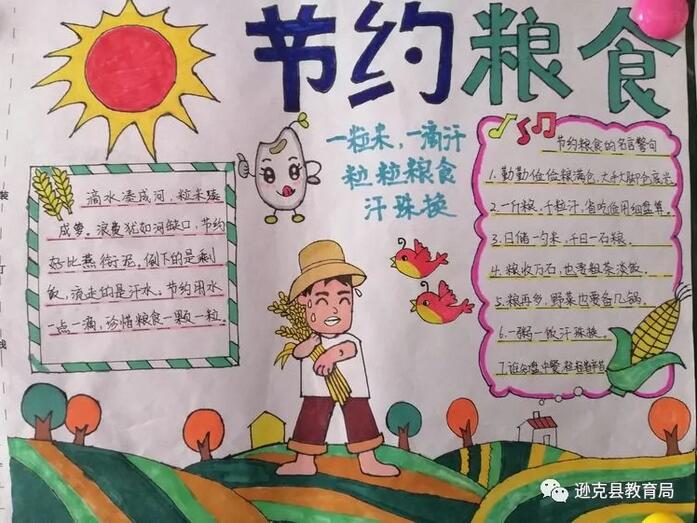 节约粮食
一粒米,一滴汗
粒粒粮食
汗珠换
滴水凑成河,粒米凑
成箩。浪费犹如河缺口,节约
好比燕衔泥。倒下的是剩
饭,流走的是汗水。节约用水
一点一滴,珍惜粮食一颗一粒。
节约粮食的名言警句
1.勤勤俭俭粮满仓,大手大脚仓底光
2.一斤粮,千粒汗,省吃俭用细盘算。
3.日储一勺米,千日一石粮。
4.粮收万石,也要粗茶淡饭。
5.粮再多,野菜也要备几锅。
6.一粥一饭汗珠换。
7.谁知盘中餐,粒粒皆辛苦
装
订
线
逊克县教育局